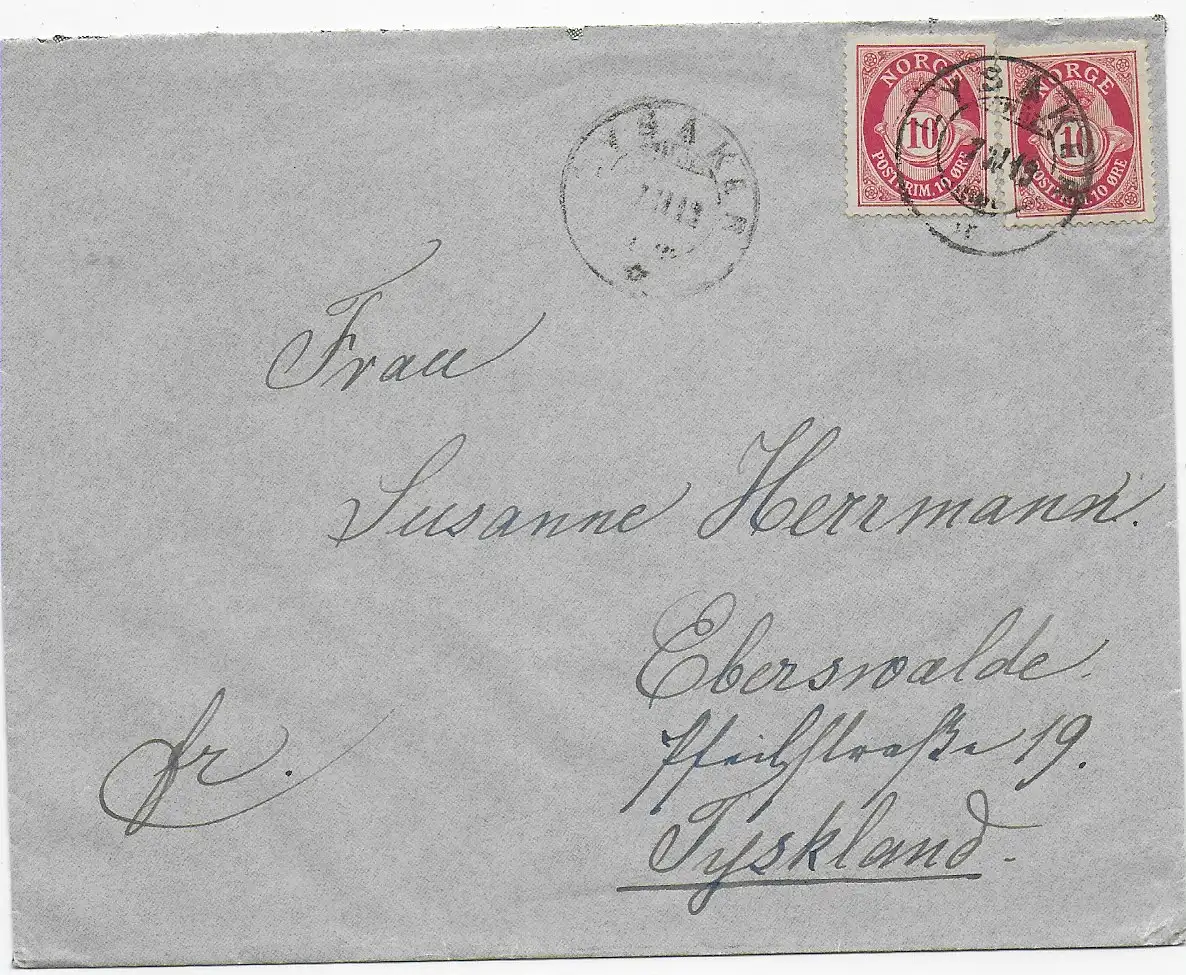 NORGE
10
POSTFRIM. 10 ØRE
NORGE
10
POSTFRIM. 10 ØRE
LYSAKER
LYSAKER
Frau
Susanne Herrmann.
Eberswalde.
Pfeilstraße 19.
fr.
Tyskland.